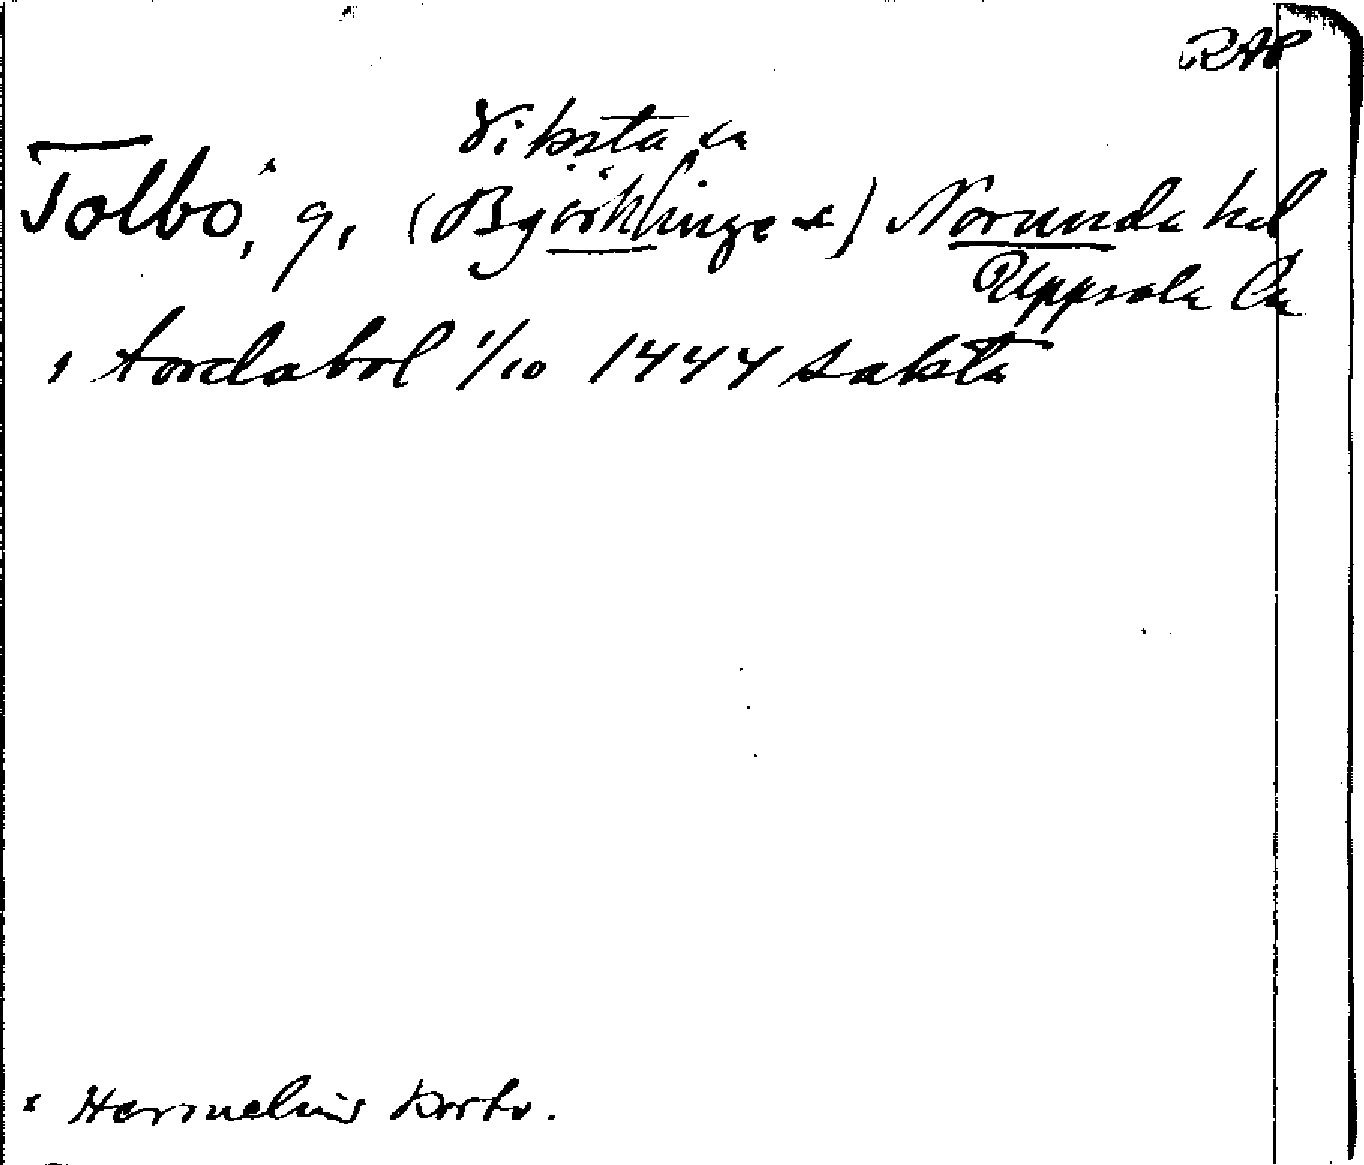 RAP
Viksta sn
Tolbo, ˣ g. (Björklinge sn) Norunda hd
Uppsala län
i tordabol 1/10 1444 Saksta
x Hermelins karta.